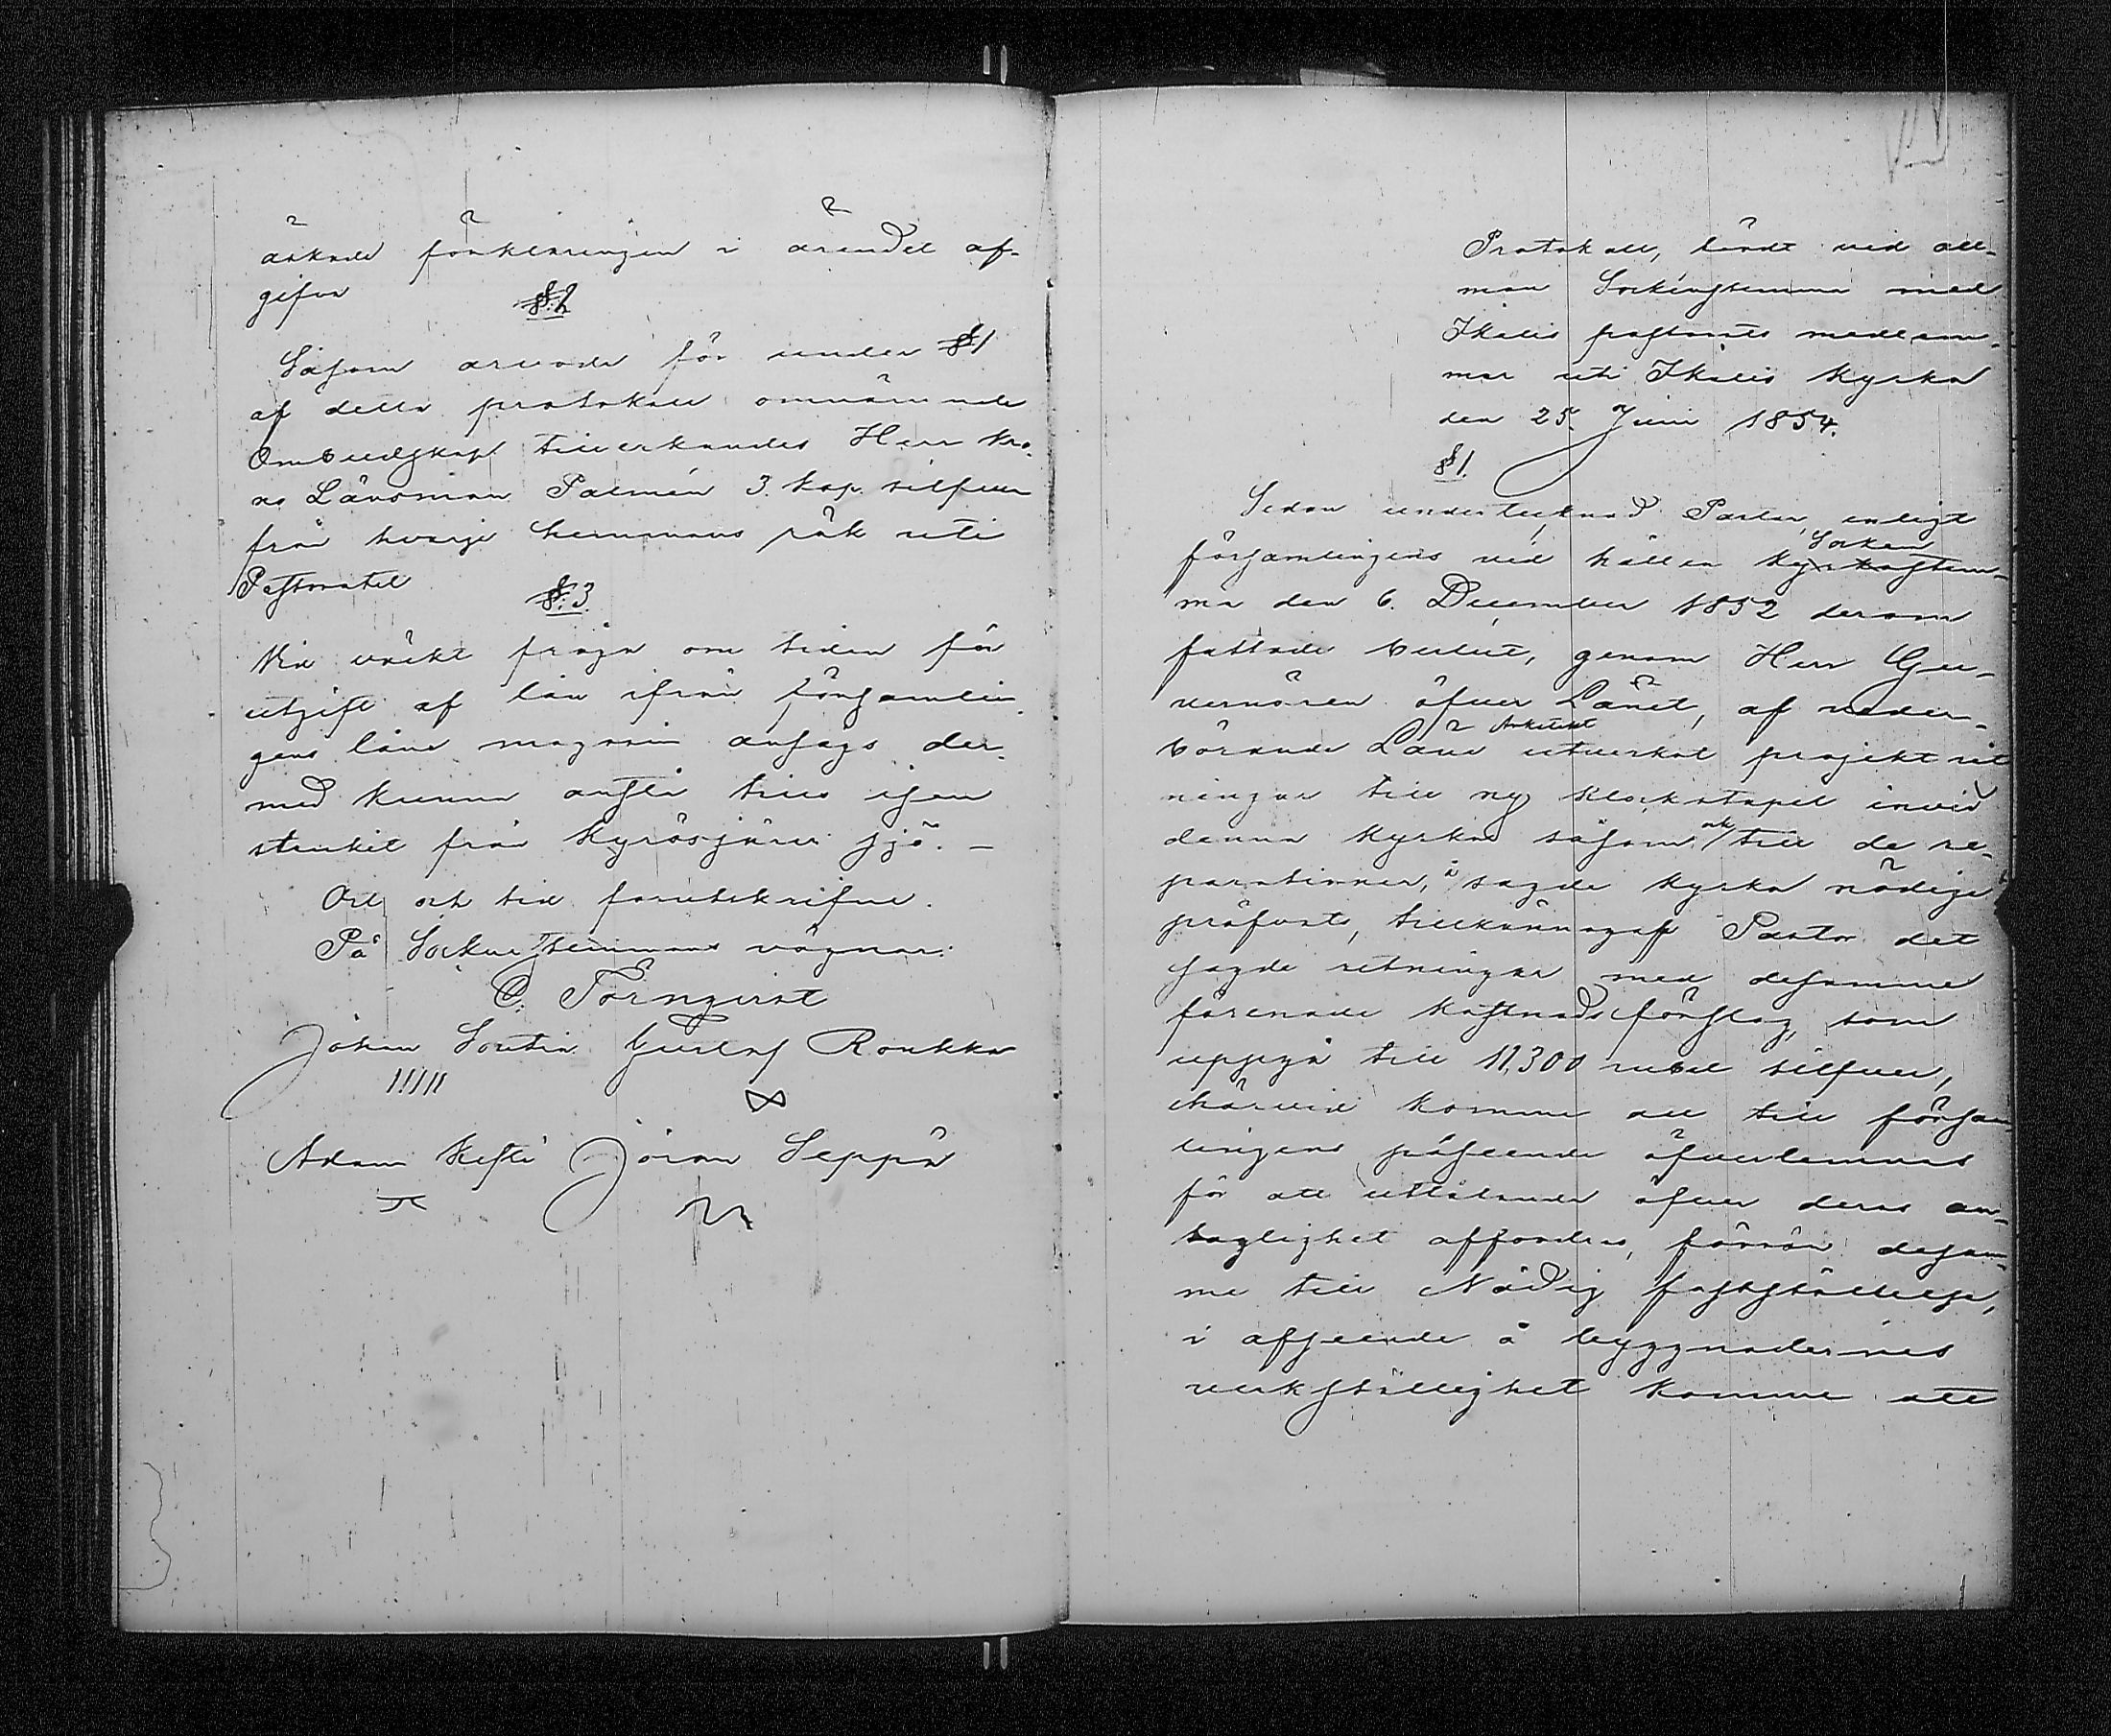 äskade förklaringen i ärendet af-
gifva
§:2
Såsom arvode för under §1
af detta protokoll omnämnde
Ombudskap tillerkändes Herr Kro-
no Länsman Palmén 3. kop. silfver
från hvarje hemmans rök uti
Pastoratet
§:3.
Vid väckt fråga om tiden för
utgift af lån ifrån församlin-
gens låne magasin ansågs der-
med kunna anstå tills isen
skulle från Kyrösjärvi sjö. –
Ort och tid förutskrifne.
På Sockenstemmans vägnar:
C. Törnqvist
Johan Sontin Gustaf Roukka
Adam Kesti Jöran Seppä
Protokoll, fördt vid all-
män Sockenstemma med
Ikalis pastorats medlem-
mar uti Ikalis Kyrka
den 25. Juni 1854.
§1.
Sedan undertecknad Pastor, enligt
Socken
församlingens vid hållen Kyrkostem-
ma den 6. December 1852 derom
fattade beslut, genom Herr Gu-
vernören öfver Länet, af veder-
Arkitekt
börande Läns utverkat projekt rit
ningar till ny klockstapel invid
denna kyrka såsom ock till de re-
parationer, å sagde kyrka nödige
pröfvats, tillkännagaf Pastor det
sagde ritningar med desamma
förenade kostnadsförslag, som
uppgå till 11,300 rubel silfver,
härvid komme att till försam-
lingens påseende öfverlemnas
för att utlåtande öfver deras an-
taglighet affordras, förrän desam-
me till Nådig fastställelse,
i afseende å byggnadernes
verkställighet komme att